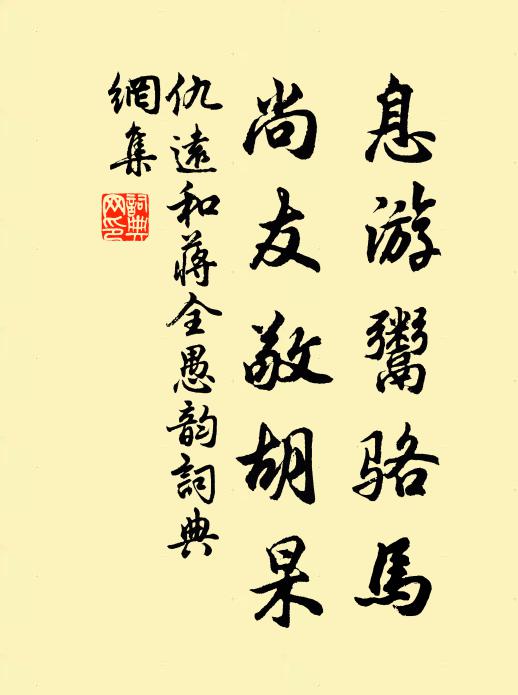 息游鬻骆馬
尚友敬胡杲
仇遠和蔣全愚韵詞典
網集
詞典
网印